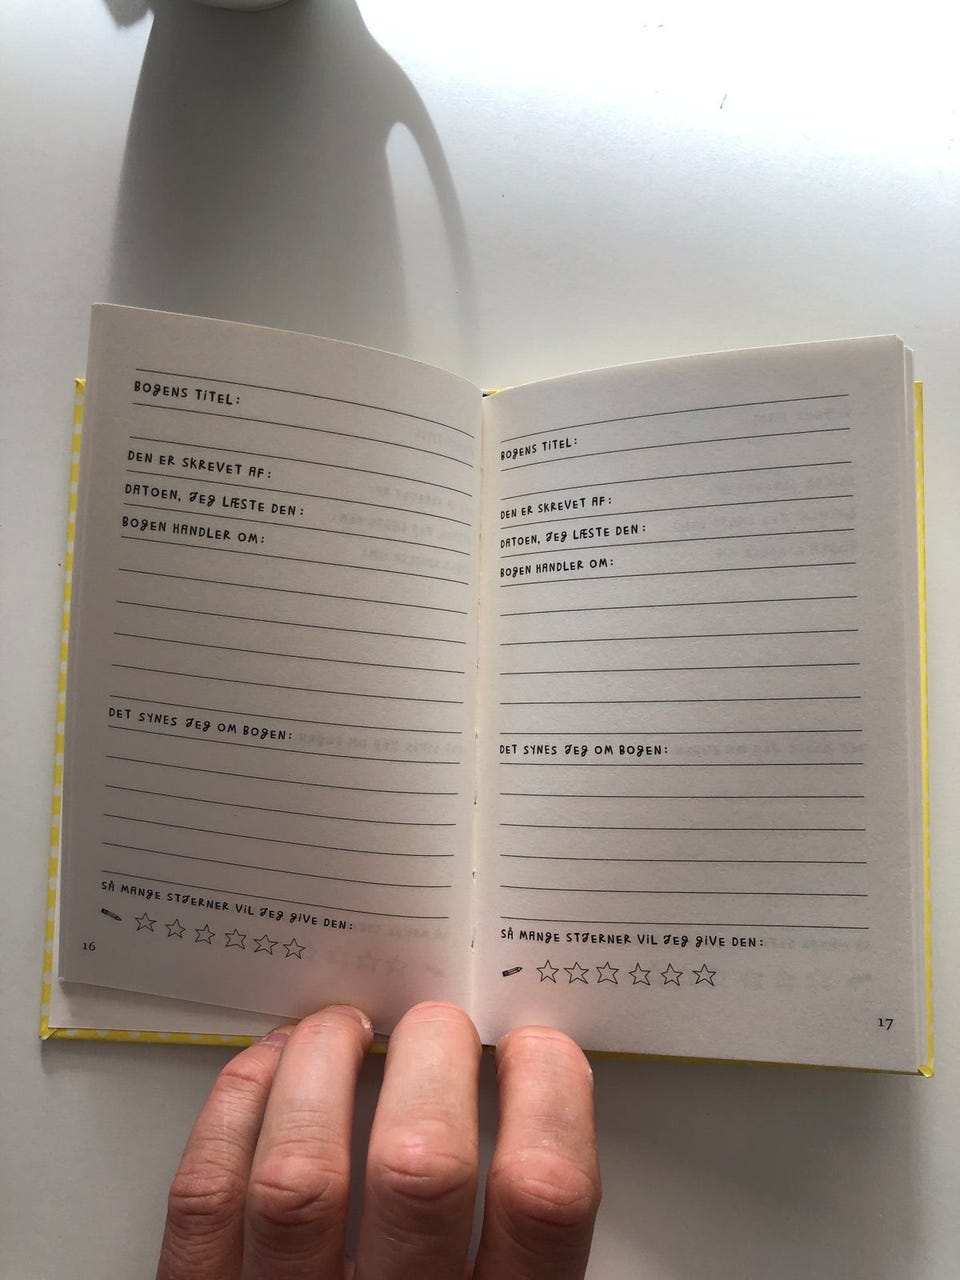 BOGENS TITEL:
DEN ER SKREVET AF:
DATOEN, JEG LÆSTE DEN:
BOGEN HANDLER OM:
DET SYNES JEG OM BOGEN:
SÅ MANGE STJERNER VIL JEG GIVE DEN:
16
BOGENS TITEL:
DEN ER SKREVET AF:
DATOEN, JEG LÆSTE DEN:
BOGEN HANDLER OM:
DET SYNES JEG OM BOGEN:
SÅ MANGE STJERNER VIL JEG GIVE DEN:
17